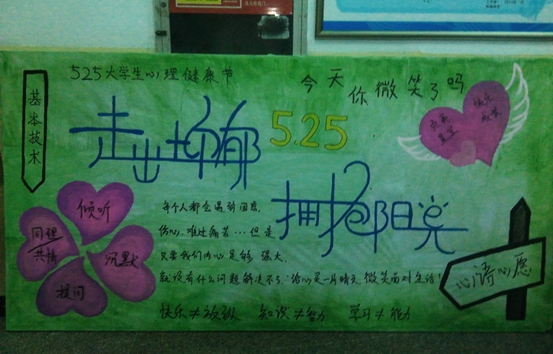 525大学生心理健康节
今天你微笑了吗
基本技术
走出抑郁
5.25
拥抱阳光
倾听
同理
共情
沉默
提问
每个人都会遇到困惑,
伤心、难过痛苦...但是
只要我们内心足够 强大,
就没有什么问题解决不了!给心灵一片晴天 微笑面对生活!
快乐≠放纵 知识≠智力 学习≠能力
心语心愿